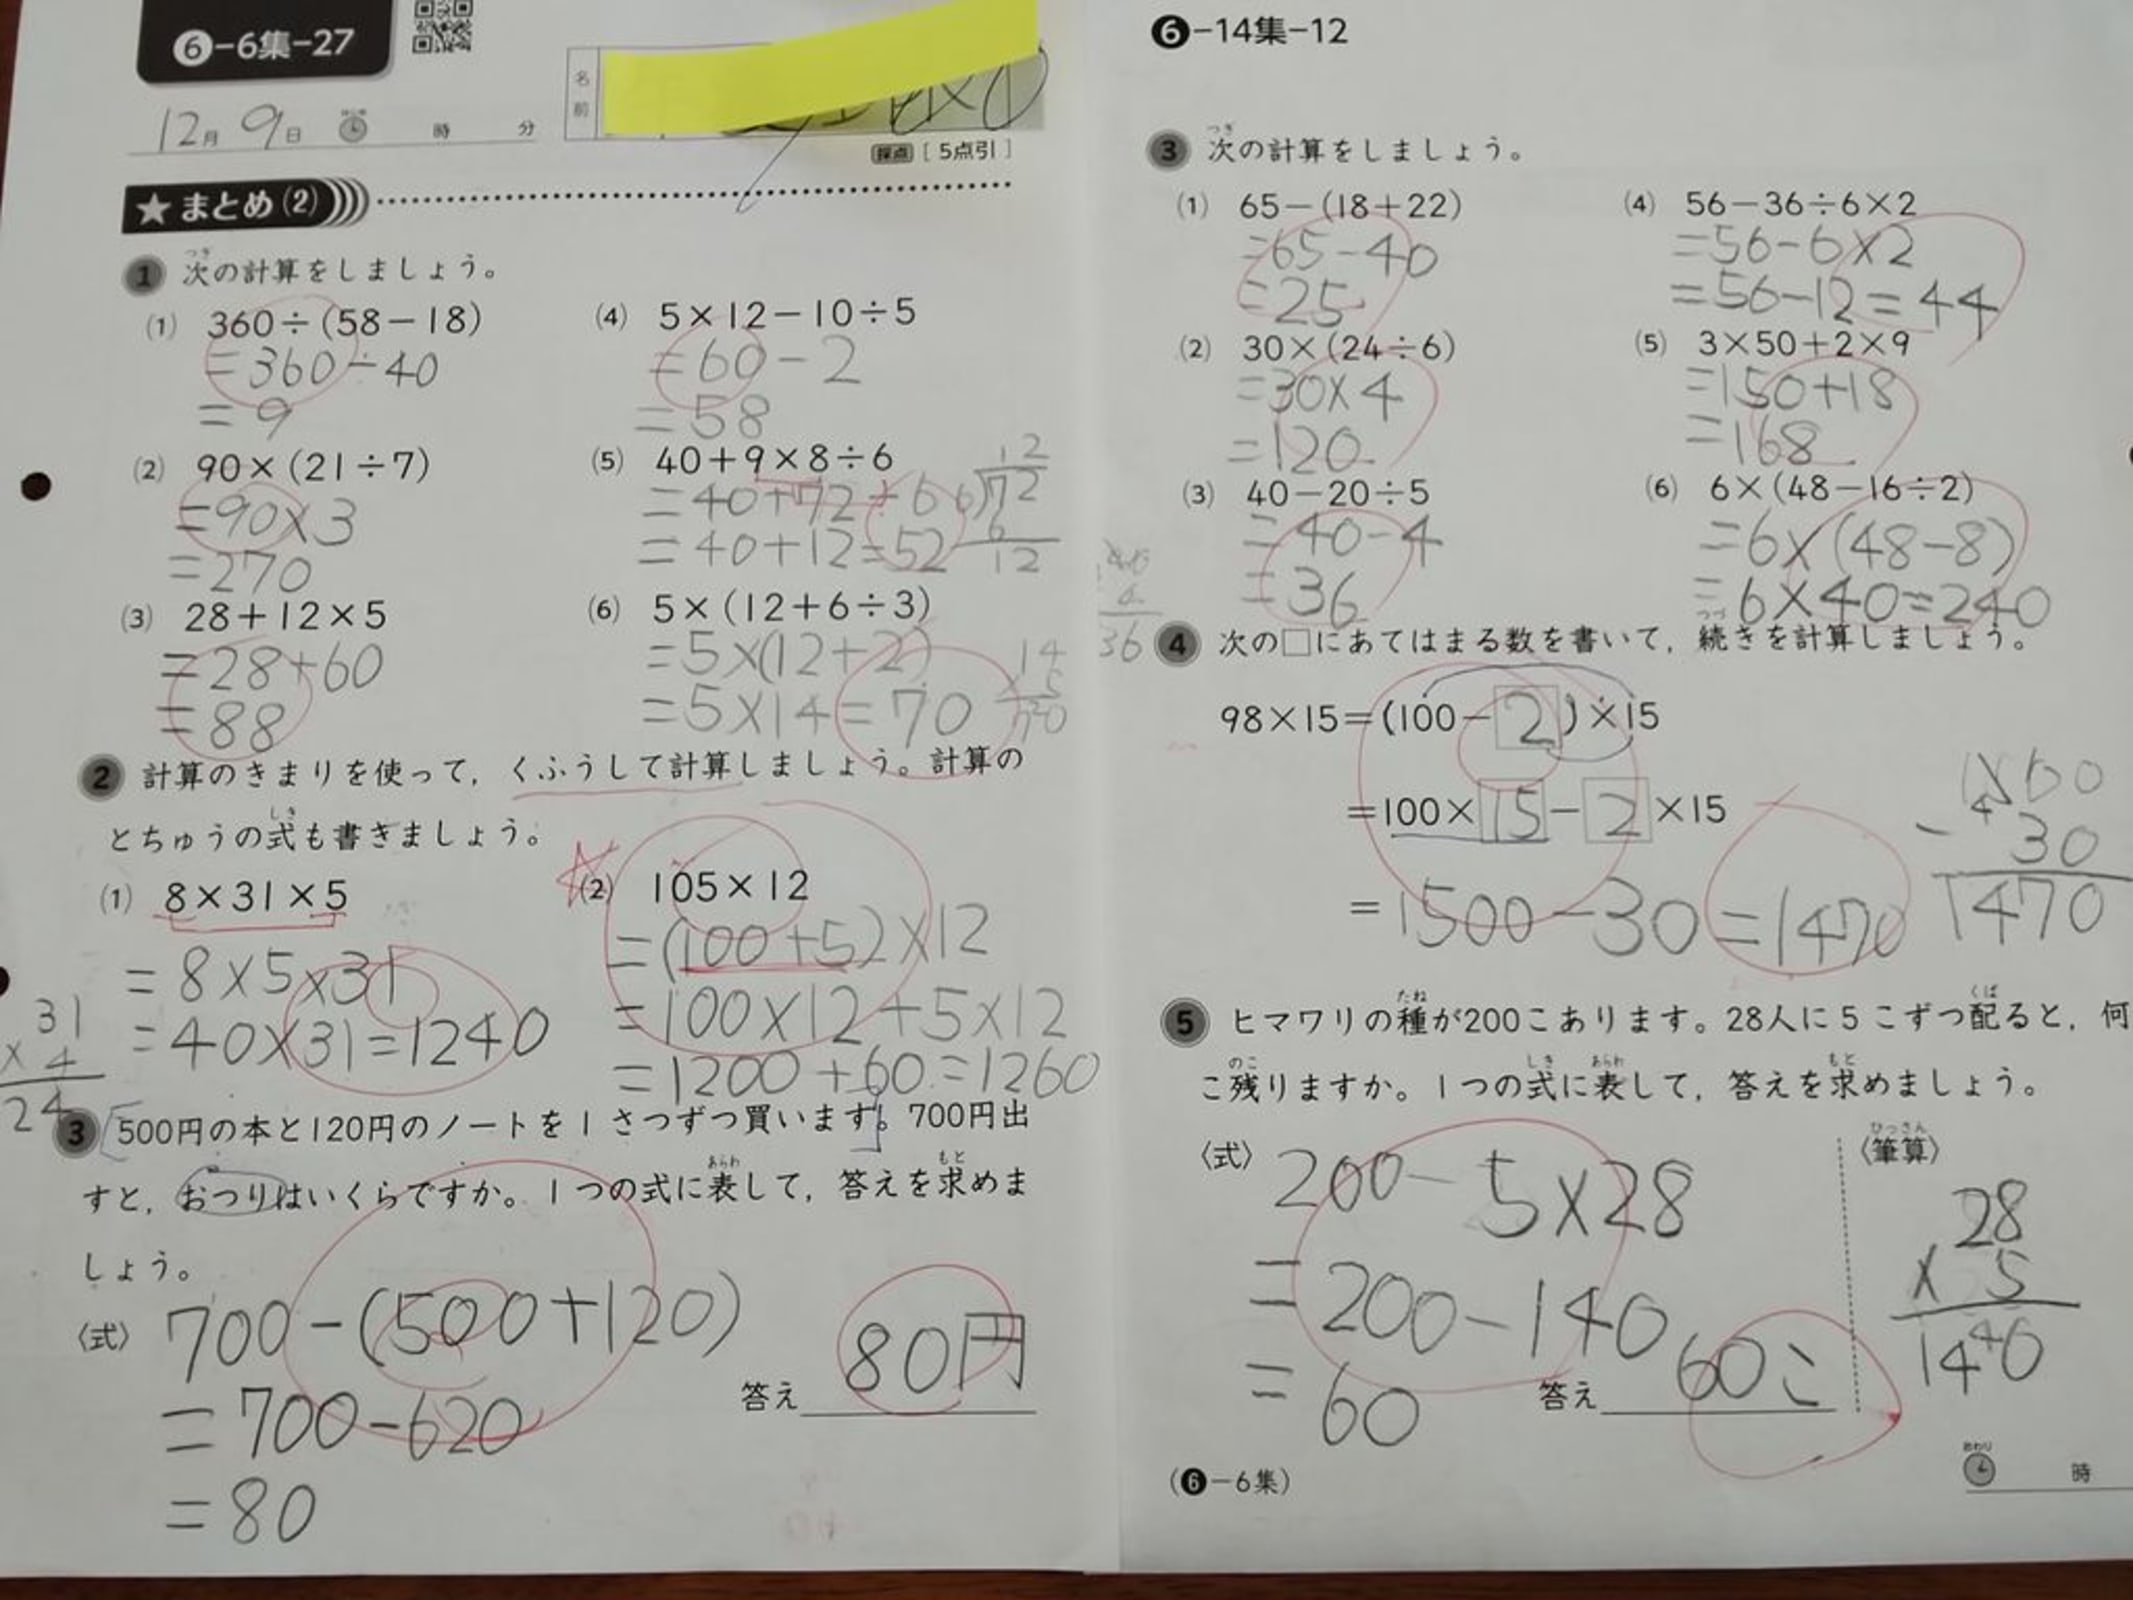 ❻-6集-27
12月9日 時 分
名前
採点 [ 5点引 ]
★まとめ(2)
❶ 次の計算をしましょう。
(1) 360÷(58-18)
=360÷40
=9
(2) 90×(21÷7)
=90×3
=270
(3) 28+12×5
=28+60
=88
(4) 5×12-10÷5
=60-2
=58
(5) 40+9×8÷6
=40+72÷6
=40+12=52
12
6)72
6
12
(6) 5×(12+6÷3)
=5×(12+2)
=5×14=70
14
×5
70
❷ 計算のきまりを使って，くふうして計算しましょう。計算の
とちゅうの式も書きましょう。
(1) 8×31×5
=8×5×31
=40×31=1240
31
×4
24
(2) 105×12
=(100+5)×12
=100×12+5×12
=1200+60=1260
❸ 500円の本と120円のノートを1さつずつ買います。700円出
すと，おつりはいくらですか。1つの式に表して，答えを求めま
しょう。
〈式〉 700-(500+120)
=700-620
=80
答え 80円
❻-14集-12
❸ 次の計算をしましょう。
(1) 65-(18+22)
=65-40
=25
(2) 30×(24÷6)
=30×4
=120
(3) 40-20÷5
=40-4
=36
36
(4) 56-36÷6×2
=56-6×2
=56-12=44
(5) 3×50+2×9
=150+18
=168
(6) 6×(48-16÷2)
=6×(48-8)
=6×40=240
❹ 次の□にあてはまる数を書いて，続きを計算しましょう。
98×15=(100-2)×15
=100×15-2×15
=1500-30=1470
- 30
1470
❺ ヒマワリの種が200こあります。28人に5こずつ配ると，何
こ残りますか。1つの式に表して，答えを求めましょう。
〈式〉 200-5×28
=200-140
=60
答え 60こ
〈筆算〉
28
×5
140
(❻-6集)
おわり 時